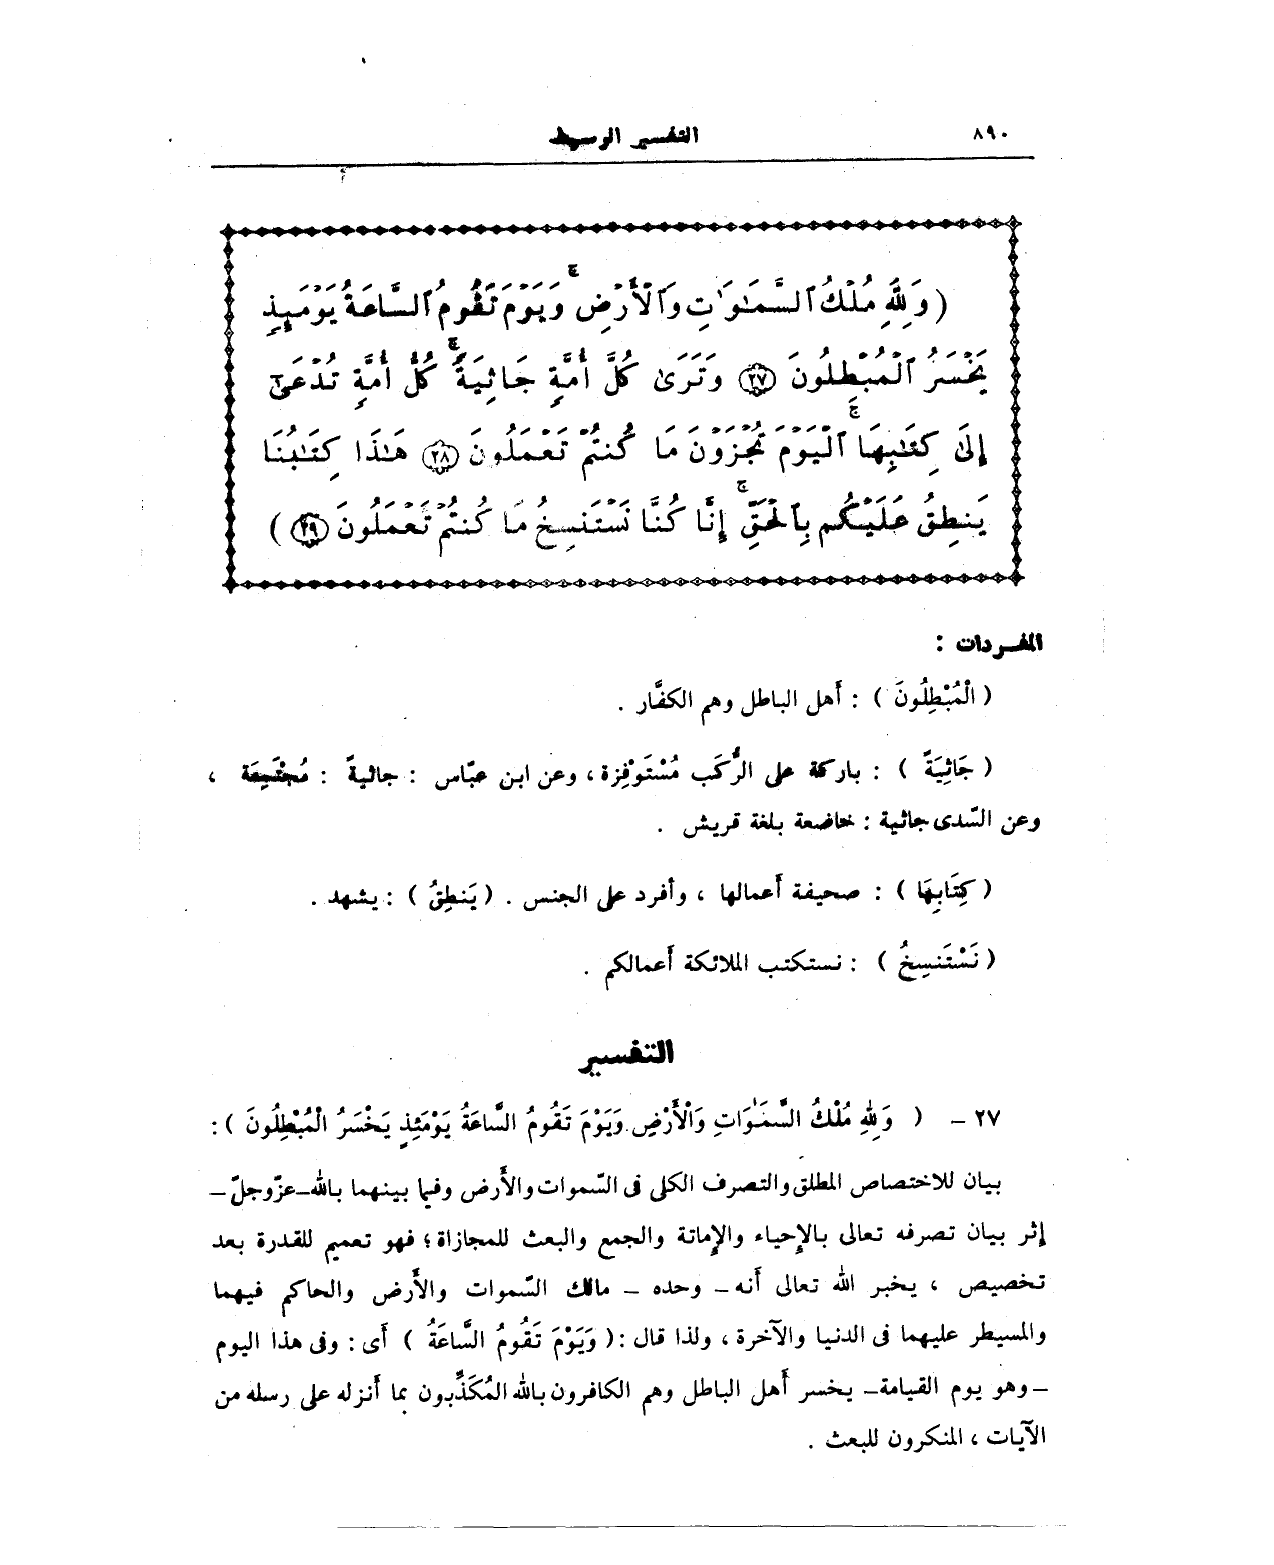 ٨٩٠
التفسير الوسيط
( وَلِلَّهِ مُلْكُ ٱلسَّمَٰوَٰتِ وَٱلْأَرْضِ ۚ وَيَوْمَ تَقُومُ ٱلسَّاعَةُ يَوْمَئِذٍ
يَخْسَرُ ٱلْمُبْطِلُونَ ٢٧ وَتَرَىٰ كُلَّ أُمَّةٍ جَاثِيَةً ۚ كُلُّ أُمَّةٍ تُدْعَىٰٓ
إِلَىٰ كِتَٰبِهَا ۚ ٱلْيَوْمَ تُجْزَوْنَ مَا كُنتُمْ تَعْمَلُونَ ٢٨ هَٰذَا كِتَٰبُنَا
يَنطِقُ عَلَيْكُم بِٱلْحَقِّ ۚ إِنَّا كُنَّا نَسْتَنسِخُ مَا كُنتُمْ تَعْمَلُونَ ٢٩ )
المفردات :
( الْمُبْطِلُونَ ) : أهل الباطل وهم الكفَّار .
( جَاثِيَةً ) : باركة على الرُّكَب مُسْتَوْفِزة ، وعن ابن عبّاس : جاثيةً : مُجْتَمِعَة ،
وعن السّدى جاثية : خاضعة بلغة قريش .
( كِتَابِهَا ) : صحيفة أعمالها ، وأفرد على الجنس . ( يَنطِقُ ) : يشهد .
( نَسْتَنسِخُ ) : نستكتب الملائكة أعمالكم .
التفسير
٢٧ – ( وَلِلهِ مُلْكُ السَّمَٰوَاتِ وَالْأَرْضِ وَيَوْمَ تَقُومُ السَّاعَةُ يَوْمَئِذٍ يَخْسَرُ الْمُبْطِلُونَ ) :
بيان للاختصاص المطلق والتصرف الكلى فى السّموات والأرض وفيما بينهما بالله–عزّوجلّ–
إثر بيان تصرفه تعالى بالإحياء والإماتة والجمع والبعث للمجازاة ؛ فهو تعميم للقدرة بعد
تخصيص ، يخبر الله تعالى أنه – وحده – مالك السّموات والأرض والحاكم فيهما
والمسيطر عليهما فى الدنيا والآخرة ، ولذا قال : ( وَيَوْمَ تَقُومُ السَّاعَةُ ) أى : وفى هذا اليوم
– وهو يوم القيامة– يخسر أهل الباطل وهم الكافرون بالله المُكَذِّبون بما أنزله على رسله من
الآيات ، المنكرون للبعث .